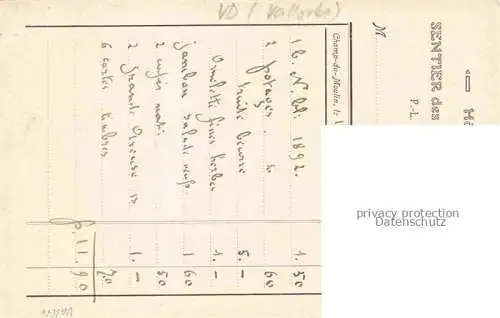 VD (Vallorbe)
Hô
SENTIER des
P.-L.
M
Champ-du-Moulin, le 1
1 b. N. bl. 1892. 1. 50
2 potages. 60
truite beurre 5. –
Omelette fines herbes 1. –
jambon salade œufs 1 60
2 cafés nat. 50
2 grande Areuse 1. –
6 cartes timbres 70
fr. 11. 90
privacy protection
Datenschutz